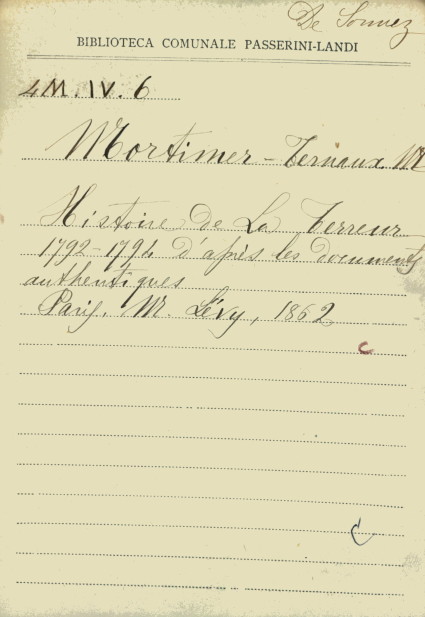 De Sonnez
BIBLIOTECA COMUNALE PASSERINI-LANDI
4M.IV.6
Mortimer-Ternaux M
Histoire de La Terreur
1792-1794 D'après les documents
authentiques
Paris. M. Lévy, 1862
C
C